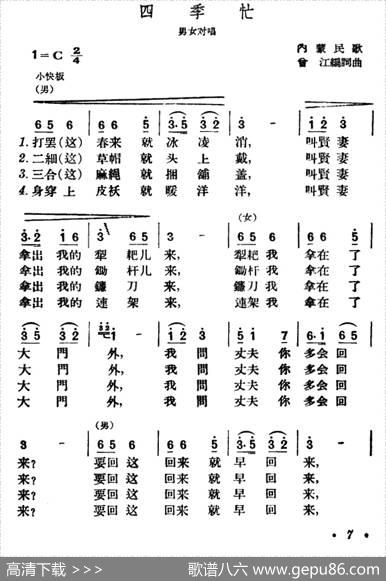 四季忙
男女对唱
1=C 2/4
內蒙民歌
曾江編詞曲
小快板
(男)
6 5 6 6 5 3·5 3 2 3 - 1 2 3
1. 打罢(这) 春来 就 冰凌 消, 叫賢妻
2. 二細(这) 草帽 就 头上 戴, 叫賢妻
3. 三合(这) 麻繩 就 捆舖 盖, 叫賢妻
4. 身穿 上 皮袄 就 暖洋 洋, 叫賢妻
(女)
3·2 1 6 3 6 5 3 - 6 5 6 6 6 5
拿出 我的 犁耙儿 来, 犁耙我 拿在了
拿出 我的 鋤杆儿 来, 鋤杆我 拿在了
拿出 我的 鐮刀 来, 鐮刀我 拿在了
拿出 我的 連架 来, 連架我 拿在了
大門 外, 我問 丈夫 你 多会回
大門 外, 我問 丈夫 你 多会回
大門 外, 我問 丈夫 你 多会回
大門 外, 我問 丈夫 你 多会回
(男)
3 - 6 5 6 6 6 5 3·5 3 2 3 -
来? 要回这 回来 就 早回 来,
来? 要回这 回来 就 早回 来,
来? 要回这 回来 就 早回 来,
来? 要回这 回来 就 早回 来,
· 7 ·
高清下载 >>>
歌谱八六 www.gepu86.com